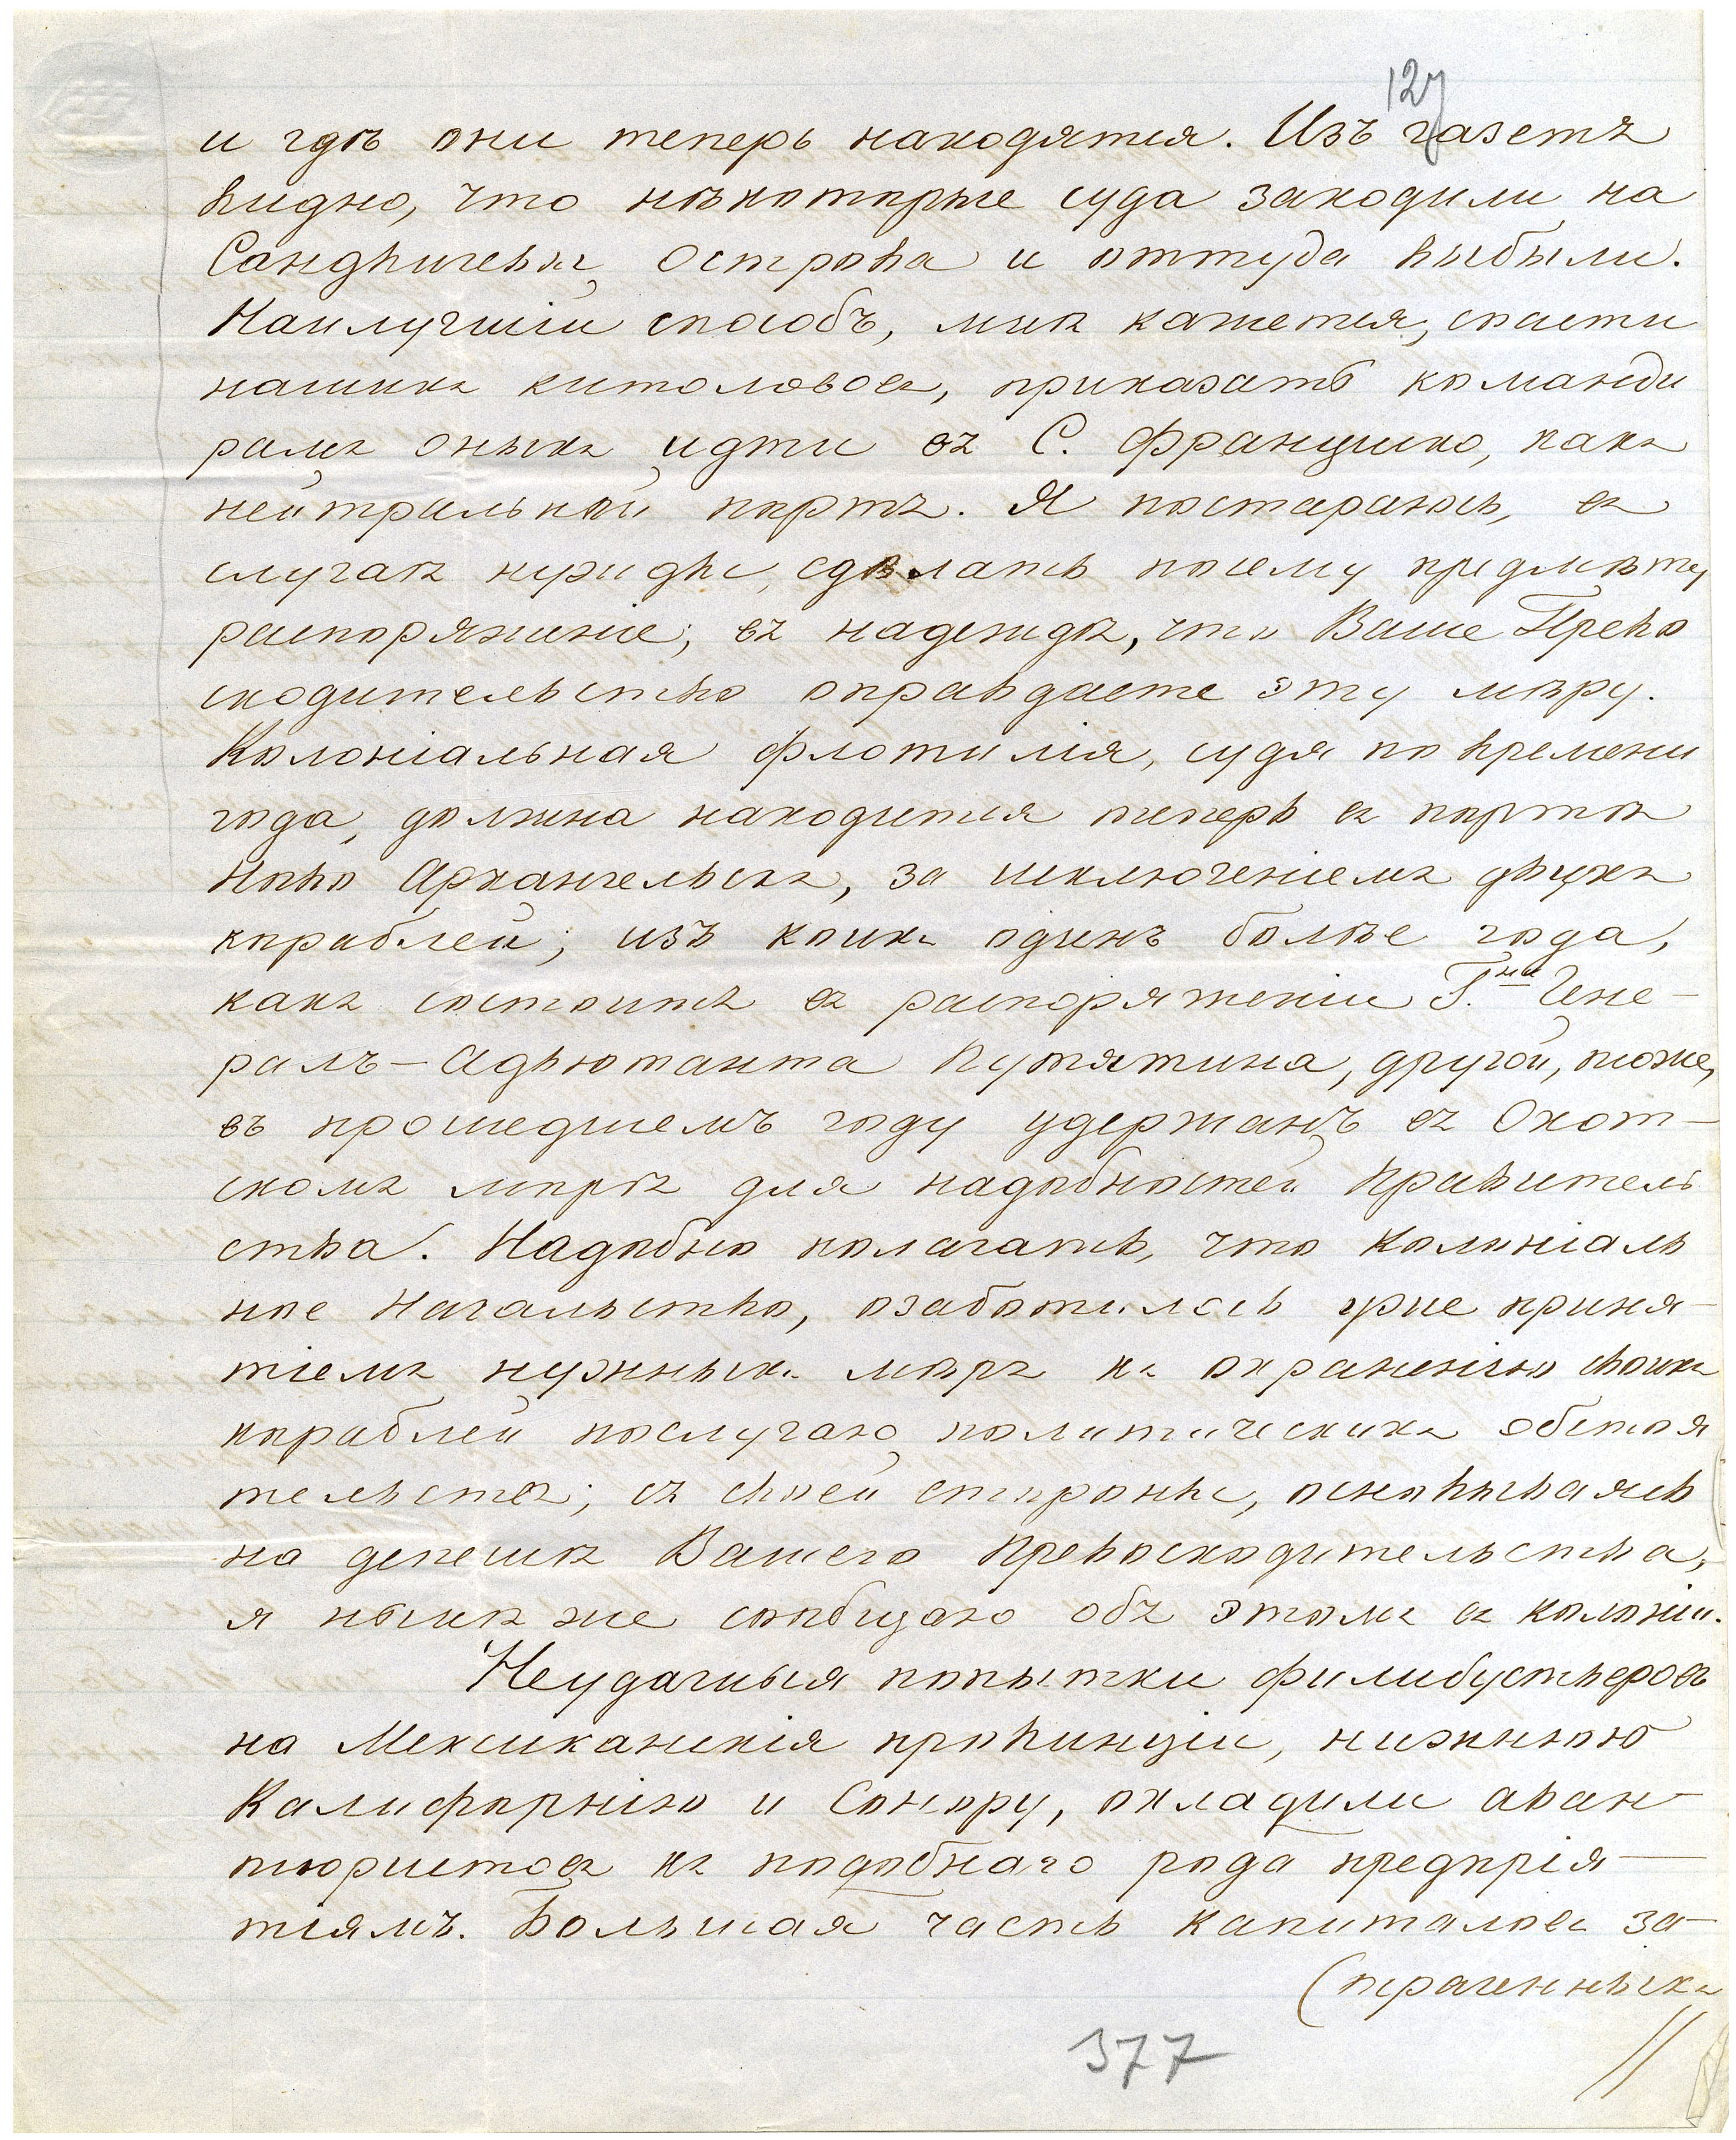 127
и гдѣ они теперь находятся. Изъ газетъ
видно, что нѣкоторые суда заходили на
Сандвичевы Острова и оттуда выбыли.
Наилучшій способъ, мнѣ кажется, спасти
нашихъ китолововъ, приказать команди
рамъ оныхъ идти въ С. Франциско, какъ
нейтральной портъ. Я постараюсь, въ
случаѣ нужды, сдѣлать посему предмѣту
распоряженіе; въ надеждѣ, что Ваше Прево
сходительство оправдаете эту мѣру.
Колоніальная флотилія, судя по времени
года, должна находится теперь въ портѣ
Ново Архангельскъ, за исключеніемъ двухъ
кораблей; изъ коихъ одинъ болѣе года,
какъ состоитъ въ распоряженіи Г.на Гене-
ралъ-Адъютанта Путятина, другой, тоже,
въ прошедшемъ году удержанъ въ Охот-
скомъ морѣ для надобностей Правитель
ства. Надобно полагать, что Колоніаль
ное Начальство, озаботилось уже приня-
тіемъ нужныхъ мѣръ къ охраненію своихъ
кораблей послучаю политическихъ обстоя
тельствъ; съ своей стороны, основываясь
на депешѣ Вашего Превосходительства,
я нынѣ же сообщаю объ этомъ въ колоніи.
Неудачныя попытки филибустьеровъ
на Мексиканскія провинціи, нижнюю
Калифорнію и Сонору, охладили аван-
тюристовъ къ подобнаго рода предпрія-
тіямъ. Большая часть капиталовъ за-
(траченныхъ
377